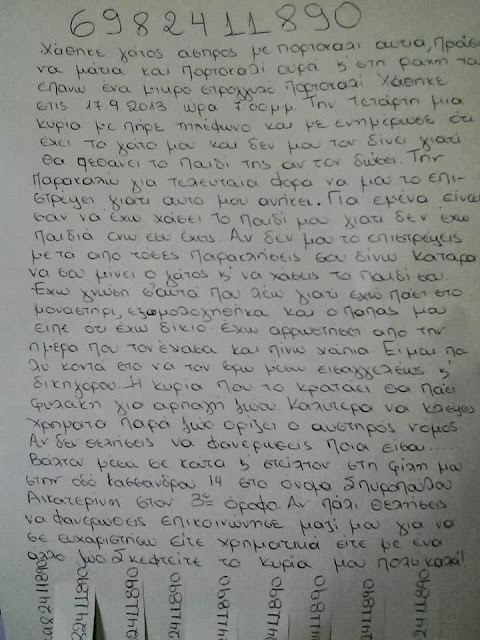 6982411890
Χάθηκε γάτος άσπρος με πορτοκαλί αυτιά, πράσι
να μάτια και πορτοκαλί ουρά κ' στη ράχη του
επάνω ένα μικρό στρογγυλό πορτοκαλί. Χάθηκε
στις 17.9.2013 ώρα 7:00μμ. Την Τετάρτη μια
κυρία με πήρε τηλέφωνο και με ενημέρωσε ότι
έχει το γάτο μου και δεν μου τον δίνει γιατί
θα πεθάνει το παιδί της αν τον δώσει. Την
παρακαλώ για τελευταία φορά να μου το επι-
στρέψει γιατί αυτό μου ανήκει. Για εμένα είναι
σαν να έχω χάσει το παιδί μου γιατί δεν έχω
παιδιά ενώ εσύ έχεις. Αν δεν μου το επιστρέψεις
μετά από τόσες παρακλήσεις σου δίνω κατάρα
να σου μείνει ο γάτος κ' να χάσεις το παιδί σου.
Έχω γνώση σ'αυτά που λέω γιατί έχω πάει στο
μοναστήρι, εξομολογήθηκα και ο παπάς μου
είπε ότι έχω δίκιο. Έχω αρρωστήσει από την
ημέρα που τον έχασα και πίνω χάπια. Είμαι πο-
λύ κοντά στο να τον βρω μέσω εισαγγελέως κ'
δικηγόρου. Η κυρία που το κρατάει θα πάει
φυλακή για αρπαγή ζώου. Καλύτερα να κλέψεις
χρήματα παρά ζώο ορίζει ο αυστηρός νόμος.
Αν δεν θελήσεις να φανερωθείς ποια είσαι.....
Βάλτον μέσα σε κουτί κ' στείλτον στη φίλη μου
στην οδό Κασσάνδρου 14 στο όνομα Σπυροπούλου
Αικατερίνη στον 3ο όροφο. Αν πάλι θελήσεις
να φανερωθείς επικοινώνησε μαζί μου για να
σε ευχαριστήσω είτε χρηματικά είτε με ένα
άλλο ζώο. Σκεφτείτε το κυρία μου πολύ καλά!
2411890
2411890
2411890
2411890
2411890
2411890
2411890
2411890